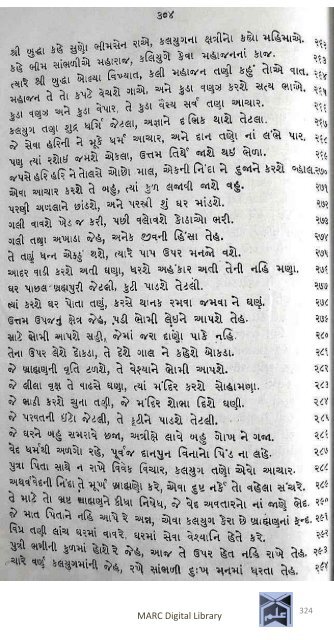 ૩૦૪
શ્રી બુદ્ધા કહે સુણો ભીમસેન રાએ, કલયુગના ક્ષત્રીનો કહ્યો મહિમાએ. ૨૬૨
કહે ભીમ સાંભળીએ મહારાજ, કલિયુગે કેવા મહાજનનાં કાજ. ૨૬૩
ત્યારે શ્રી બુદ્ધ બોલ્યા વિખ્યાત, કલી મહાજન તણી કહું તોએ વાત. ૨૬૪
મહાજન તે તો કપટે વેચશે ગાએ. અને કુડા વણજ કરશે સત્ય ભાએ. ૨૬૫
કુડા વણજ અને કુડા વેપાર. તે કુડા વૈશ્ય સર્વ તણા આચાર. ૨૬૬
કલયુગ તણા શુદ્ર ધર્મિ જેટલા, અજ્ઞાને દંભિક થાશે તેટલા. ૨૬૭
જે સેવા હરિની ને મૂકે ધર્મ આચાર, અને દાન તણો નાં લભે પાર. ૨૬૮
પણ ત્યાં રશોઇ જમશે એકલા, ઉત્તમ તિર્થે જાશે થઇ ભેળા. ૨૬૯
જપસે હરિ હરિ ને તોલશે ઓછો માલ, એકની નિંદા ને દુજાને કરશે વ્હાલ. ૨૭૦
એવા આચાર કરશે તે બહુ, ત્યાં કુળ લજાવી જાશે વહુ. ૨૭૧
પરણી અબળાને છાંડશે, અને પરસ્ત્રી શું ઘર માંડશે. ૨૭૨
ગલી વાવશે ખેડ જ કરી, પછી વલોવશે કોઠાઓ ભરી. ૨૭૩
ગલી તણા અખાડા જેહ, અનેક જીવની હિંસા તેહ. ૨૭૪
તે તણું ધન એકઠું થશે, ત્યારે પાપ ઉપર મનને વશે. ૨૭૫
આદર વાડી કરશે અતી ઘણા, ધરશે અહંકાર અતી તેની નહિ મણા. ૨૭૬
ઘર પાછળ બ્રહ્મપુરી જેટલી, કુટી પાડશે તેટલી. ૨૭૭
ત્યાં કરશે ઘર પોતા તણું, કરસે થાનક રમવા જમવા ને ઘણું. ૨૭૮
ઉત્તમ ઉપજનું ક્ષેત્ર જેહ, પડી ભોમી લેઇને આપશે તેહ. ૨૭૯
સાટે ભોમી આપશે સહી, જેમાં જરા દાણો પાકે નહિ. ૨૮૦
તેના ઉપર લેશે દોકડા, તે દેશે ગાલ ને કહેશે બોકડા. ૨૮૧
જે બ્રાહ્મણની વૃતિ ટળશે, તે વેશ્યાને ભોમી આપશે. ૨૮૨
જે લીલા વૃક્ષ તે વાઢસે ઘણા, ત્યાં મંદિર કરશે સોહામણા. ૨૮૩
જે ભાઠી કરશે ચુના તણી, જે મંદિર શોભા દિશે ઘણી. ૨૮૪
જે પરવતની ઇંટો જેટલી, તે કૂટીને પાડશે તેટલી. ૨૮૫
જે ઘરને બહુ સમરાવે છજા, અત્રીછે લાવે બહુ ગોખ ને ગજા. ૨૮૬
વેદ ધર્મથી અળગો રહે, પૂર્વજ દાનપુન વિનાનો પિંડ ના લહે. ૨૮૭
પુત્રા પિતા સાથે ન રાખે વિવેક વિચાર, કલયુગ તણો એવો આચાર. ૨૮૮
અથર્વવેદની નિંદા તે મૂર્ખ બ્રાહ્મણો કરે, એવા દુષ્ટ નર્કે તો વહેલા સંચરે. ૨૮૯
તે માટે તો ભ્રષ્ટ બ્રાહ્મણને કીધા નિષેધ, જે વેદ અવતારનો નાં જાણે ભેદ. ૨૯૦
જે માત પિતાને નહિ આપે રે અન્ન, એવા કલયુગ કેરા છે બ્રાહ્મણનાં ફન્દ. ૨૯૧
વિપ્ર તણી લાંચ ઘરમાં વાવરે. ઘરમાં સેવા વેશ્યાનિ હેતે કરે. ૨૯૨
પુત્રી ભગીની કુળમાં હોશે રે જેહ, આજ તે ઉપર હેત નહિ રાખે તેહ. ૨૯૩
ચારે વર્ણ કલયુગમાંની જેહ, રખે સાંભળી દુઃખ મનમાં ધરતા તેહ. ૨૯૪
MARC Digital Library
324